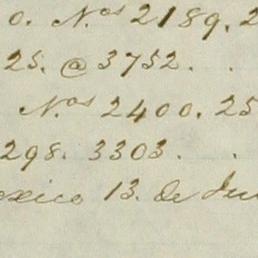 o. N.os 2189. 2
25. @ 3752. .
N.os 2400. 25
298. 3303. .
exico 13. de